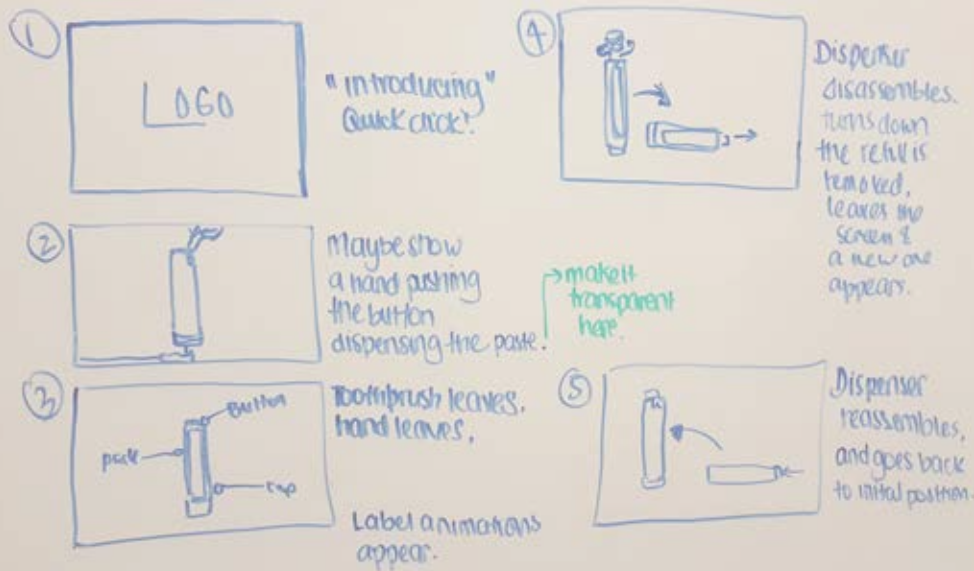 1
LOGO
"Introducing"
Quick click!
2
Maybe show
a hand pushing
the button
dispensing the paste.
make it
transparent
here.
3
Button
cap
Toothbrush leaves.
hand leaves.
Label animations
appear.
4
Dispenser
disassembles.
turns down
the refill is
removed,
leaves the
screen &
a new one
appears.
5
Dispenser
reassembles,
and goes back
to initial position.